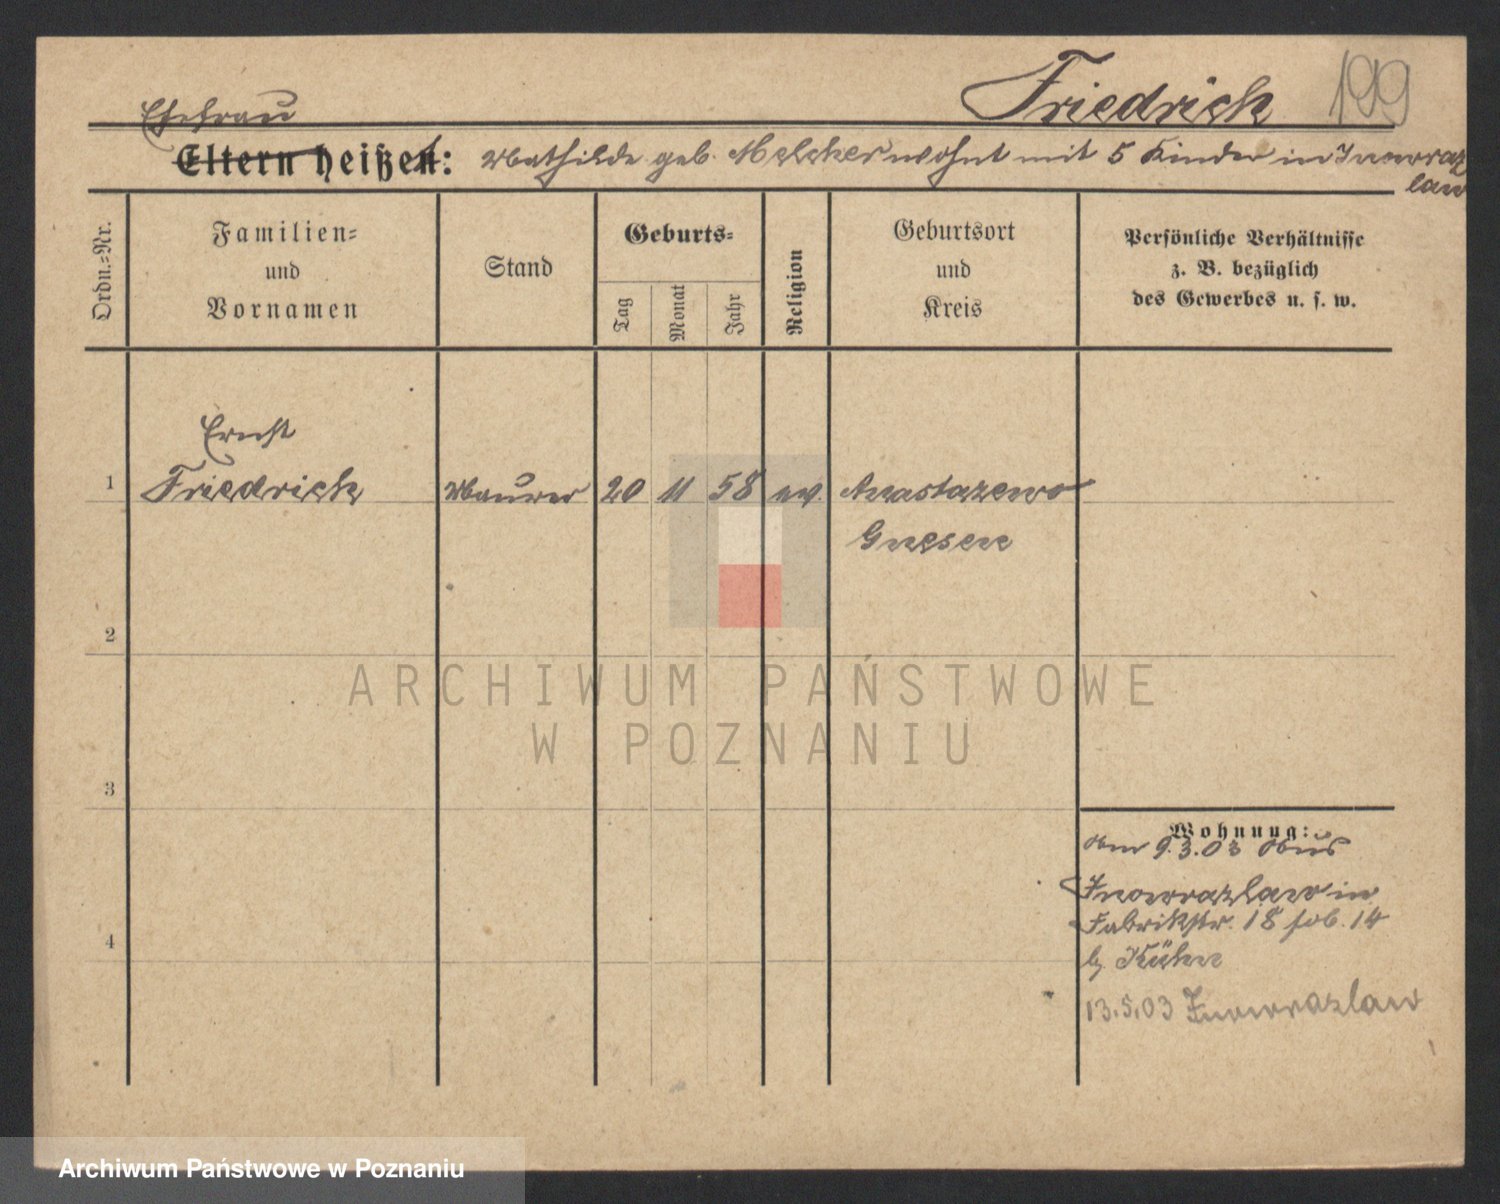 Friedrich 199
Ehefrau
Eltern heißen: Mathilde geb. Melcher wohnt mit 5 Kinder in Inowraz
law
Ordn.-Nr.
Familien-
und
Vornamen
Stand
Geburts-
Tag
Monat
Jahr
Religion
Geburtsort
und
Kreis
Persönliche Verhältnisse
z. B. bezüglich
des Gewerbes u. s. w.
Ernst
1 Friedrich Maurer 20 11 58 ev. Anastazewo
Gnesen
2
ARCHIWUM PAŃSTWOWE
W POZNANIU
3
Wohnung:
9.3.03 aus
Inowrazlaw in
Fabrikstr. 18 14
b. Kühn
4
13.5.03 Inowrazlaw
Archiwum Państwowe w Poznaniu